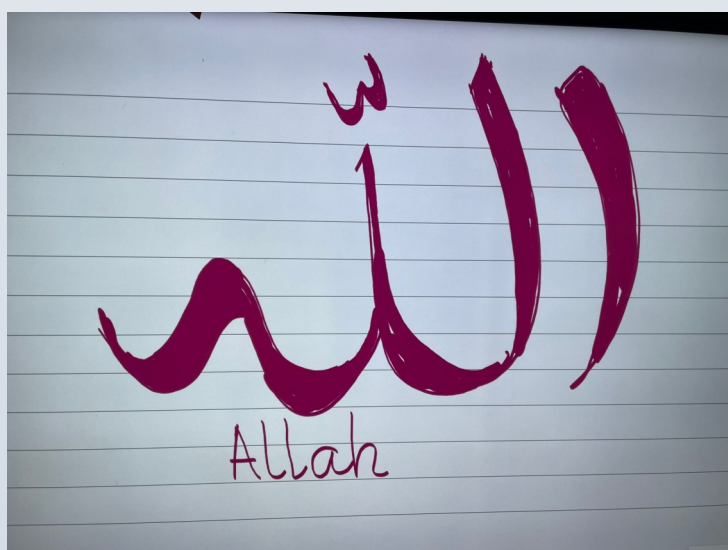 اللّه
Allah